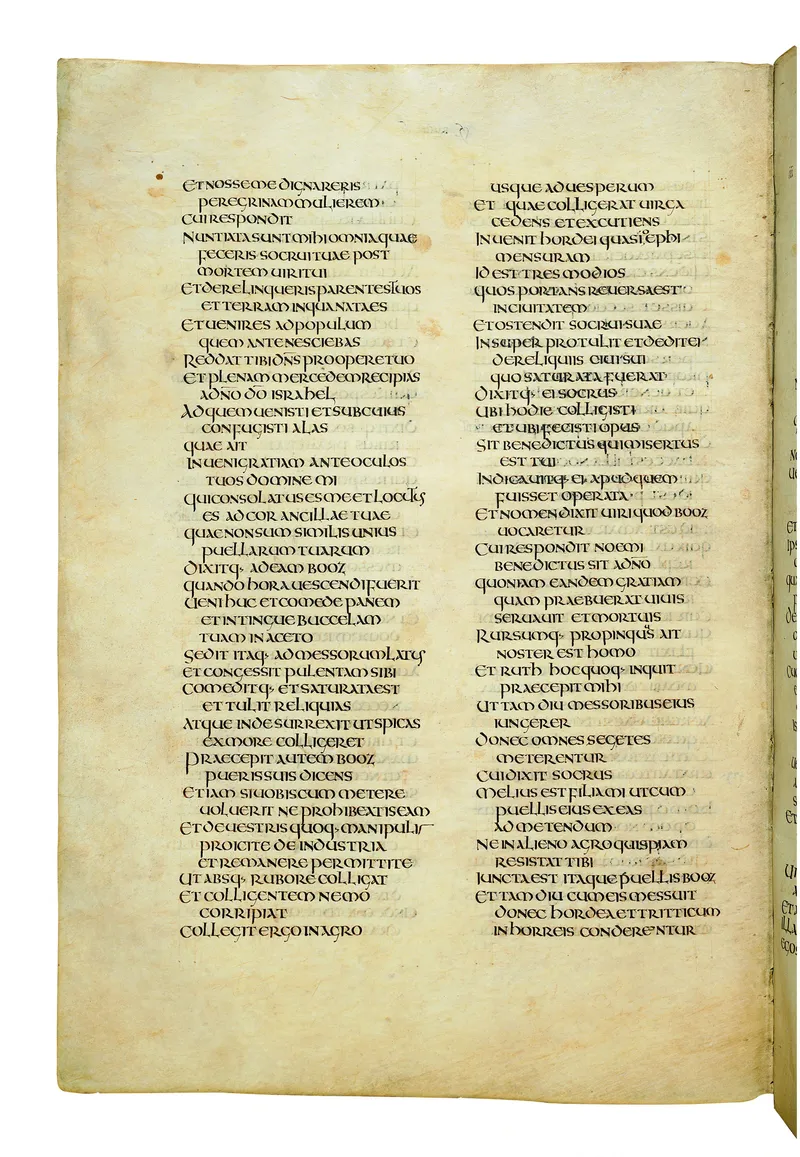 ET NOSSE ME DIGNARERIS
PEREGRINAM MULIEREM
CUI RESPONDIT
NUNTIATA SUNT MIHI OMNIA QUAE
FECERIS SOCRUI TUAE POST
MORTEM UIRI TUI
ET DERELINQUERIS PARENTES TUOS
ET TERRAM IN QUA NATA ES
ET UENIRES AD POPULUM
QUEM ANTE NESCIEBAS
REDDAT TIBI DN̄S PRO OPERE TUO
ET PLENAM MERCEDEM RECIPIAS
A DN̄O DŌ ISRAHEL
AD QUEM UENISTI ET SUB CUIUS
CONFUGISTI ALAS
QUAE AIT
INUENI GRATIAM ANTE OCULOS
TUOS DOMINE MI
QUI CONSOLATUS ES ME ET LOCUTUS
ES AD COR ANCILLAE TUAE
QUAE NON SUM SIMILIS UNIUS
PUELLARUM TUARUM
DIXITQ· AD EAM BOOZ
QUANDO HORA UESCENDI FUERIT
UENI HUC ET COMEDE PANEM
ET INTINGUE BUCCELAM
TUAM IN ACETO
SEDIT ITAQ· AD MESSORUM LATUS
ET CONGESSIT PULENTAM SIBI
COMEDITQ· ET SATURATA EST
ET TULIT RELIQUIAS
ATQUE INDE SURREXIT UT SPICAS
EX MORE COLLIGERET
PRAECEPIT AUTEM BOOZ
PUERIS SUIS DICENS
ETIAM SI UOBISCUM METERE
UOLUERIT NE PROHIBEATIS EAM
ET DE UESTRIS QUOQ· MANIPULIS
PROICITE DE INDUSTRIA
ET REMANERE PERMITTITE
UT ABSQ· RUBORE COLLIGAT
ET COLLIGENTEM NEMO
CORRIPIAT
COLLEGIT ERGO IN AGRO
USQUE AD UESPERUM
ET QUAE COLLIGERAT UIRGA
CEDENS ET EXCUTIENS
INUENIT HORDEI QUASI OEPHI
MENSURAM
ID EST TRES MODIOS
QUOS PORTANS REUERSA EST
IN CIUITATEM
ET OSTENDIT SOCRUI SUAE
INSUPER PROTULIT ET DEDIT EI
DE RELIQUIIS CIUI SUI
QUO SATURATA FUERAT
DIXITQ· EI SOCRUS
UBI HODIE COLLIGISTI
ET UBI FECISTI OPUS
SIT BENEDICTUS QUI MISERTUS
EST TUI
INDICAUITQ· EI APUD QUEM
FUISSET OPERATA
ET NOMEN DIXIT UIRI QUOD BOOZ
UOCARETUR
CUI RESPONDIT NOEMI
BENEDICTUS SIT A DN̄O
QUONIAM EANDEM GRATIAM
QUAM PRAEBUERAT UIUIS
SERUAUIT ET MORTUIS
RURSUMQ· PROPINQUUS AIT
NOSTER EST HOMO
ET RUTH HOC QUOQ· INQUIT
PRAECEPIT MIHI
UT TAM DIU MESSORIBUS EIUS
IUNGERER
DONEC OMNES SEGETES
METERENTUR
CUI DIXIT SOCRUS
MELIUS EST FILIA MI UT CUM
PUELLIS EIUS EXEAS
AD METENDUM
NE IN ALIENO AGRO QUISPIAM
RESISTAT TIBI
IUNCTA EST ITAQUE PUELLIS BOOZ
ET TAM DIU CUM EIS MESSUIT
DONEC HORDEA ET TRITTICUM
IN HORREIS CONDERENTUR